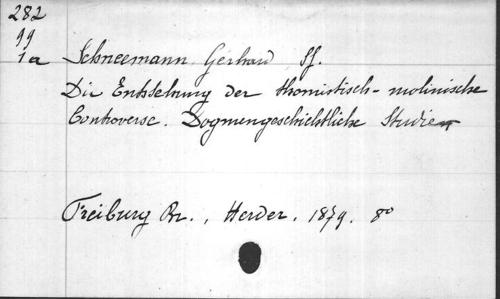 282
99
1a
Schneemann Gerhard Sf.
Die Entstehung der thomistisch-molinische
Controverse. Dogmengeschichtliche Studien
Freiburg Br., Herder, 1879. 8º